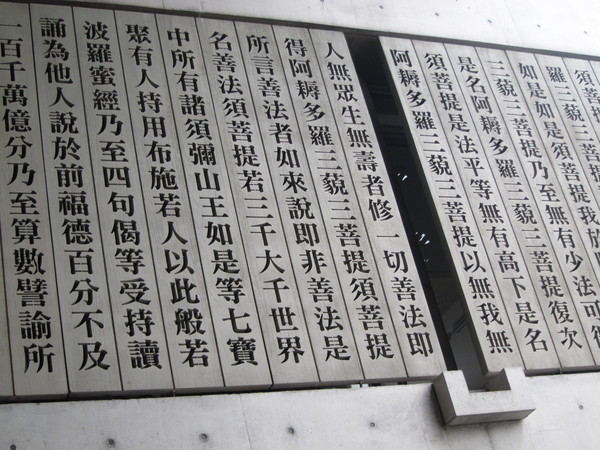 須菩
羅三藐三菩
如是如是須菩提我於阿
三藐三菩提乃至無有少法可得
是名阿耨多羅三藐三菩提復次
須菩提是法平等無有高下是名
阿耨多羅三藐三菩提以無我無
人無眾生無壽者修一切善法即
得阿耨多羅三藐三菩提須菩提
所言善法者如來說即非善法是
名善法須菩提若三千大千世界
中所有諸須彌山王如是等七寶
聚有人持用布施若人以此般若
波羅蜜經乃至四句偈等受持讀
誦為他人說於前福德百分不及
一百千萬億分乃至算數譬諭所